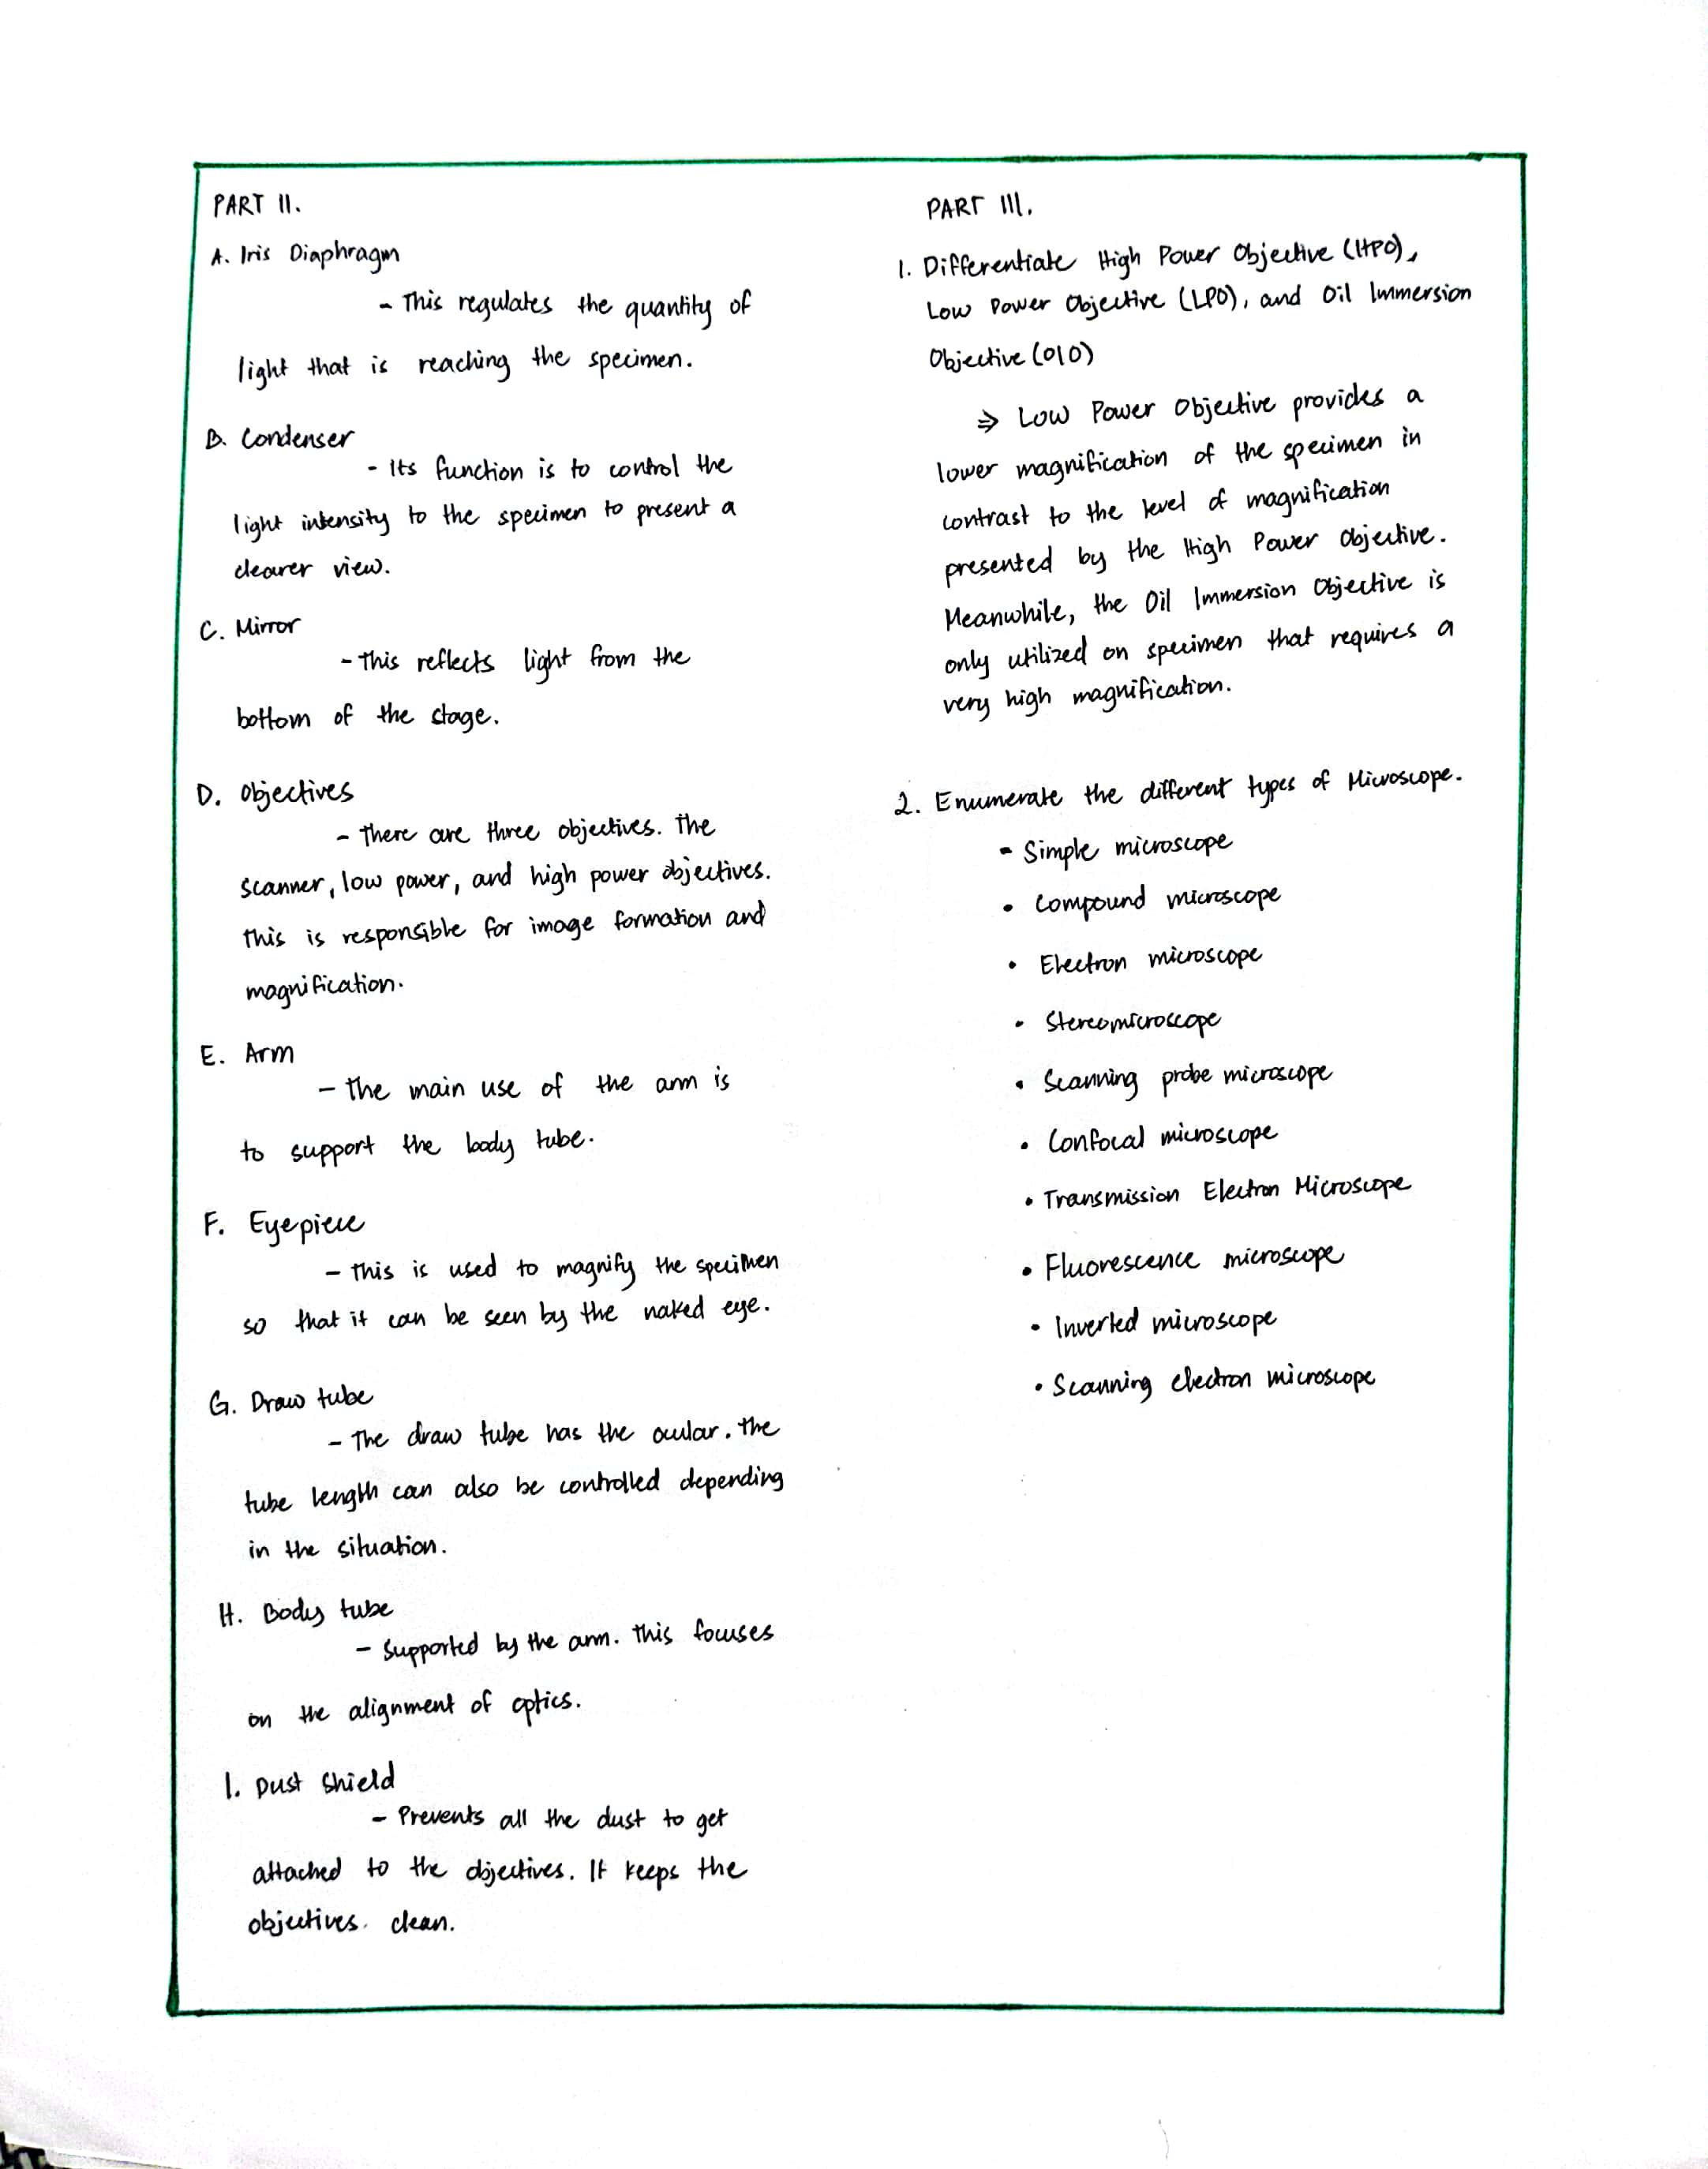 PART II.
A. Iris Diaphragm
- This regulates the quantity of
light that is reaching the specimen.
B. Condenser
- Its function is to control the
light intensity to the specimen to present a
clearer view.
C. Mirror
- This reflects light from the
bottom of the stage.
D. Objectives
- There are three objectives. The
scanner, low power, and high power objectives.
This is responsible for image formation and
magnification.
E. Arm
- The main use of the arm is
to support the body tube.
F. Eyepiece
- This is used to magnify the specimen
so that it can be seen by the naked eye.
G. Draw tube
- The draw tube has the ocular. The
tube length can also be controlled depending
in the situation.
H. Body tube
- Supported by the arm. This focuses
on the alignment of optics.
I. Dust Shield
- Prevents all the dust to get
attached to the objectives. It keeps the
objectives. clean.
PART III.
1. Differentiate High Power Objective (HPO),
Low Power Objective (LPO), and Oil Immersion
Objective (OIO)
⇒ Low Power Objective provides a
lower magnification of the specimen in
contrast to the level of magnification
presented by the High Power Objective.
Meanwhile, the Oil Immersion Objective is
only utilized on specimen that requires a
very high magnification.
2. Enumerate the different types of Microscope.
• Simple microscope
• Compound microscope
• Electron microscope
• Stereomicroscope
• Scanning probe microscope
• Confocal microscope
• Transmission Electron Microscope
• Fluorescence microscope
• Inverted microscope
• Scanning electron microscope